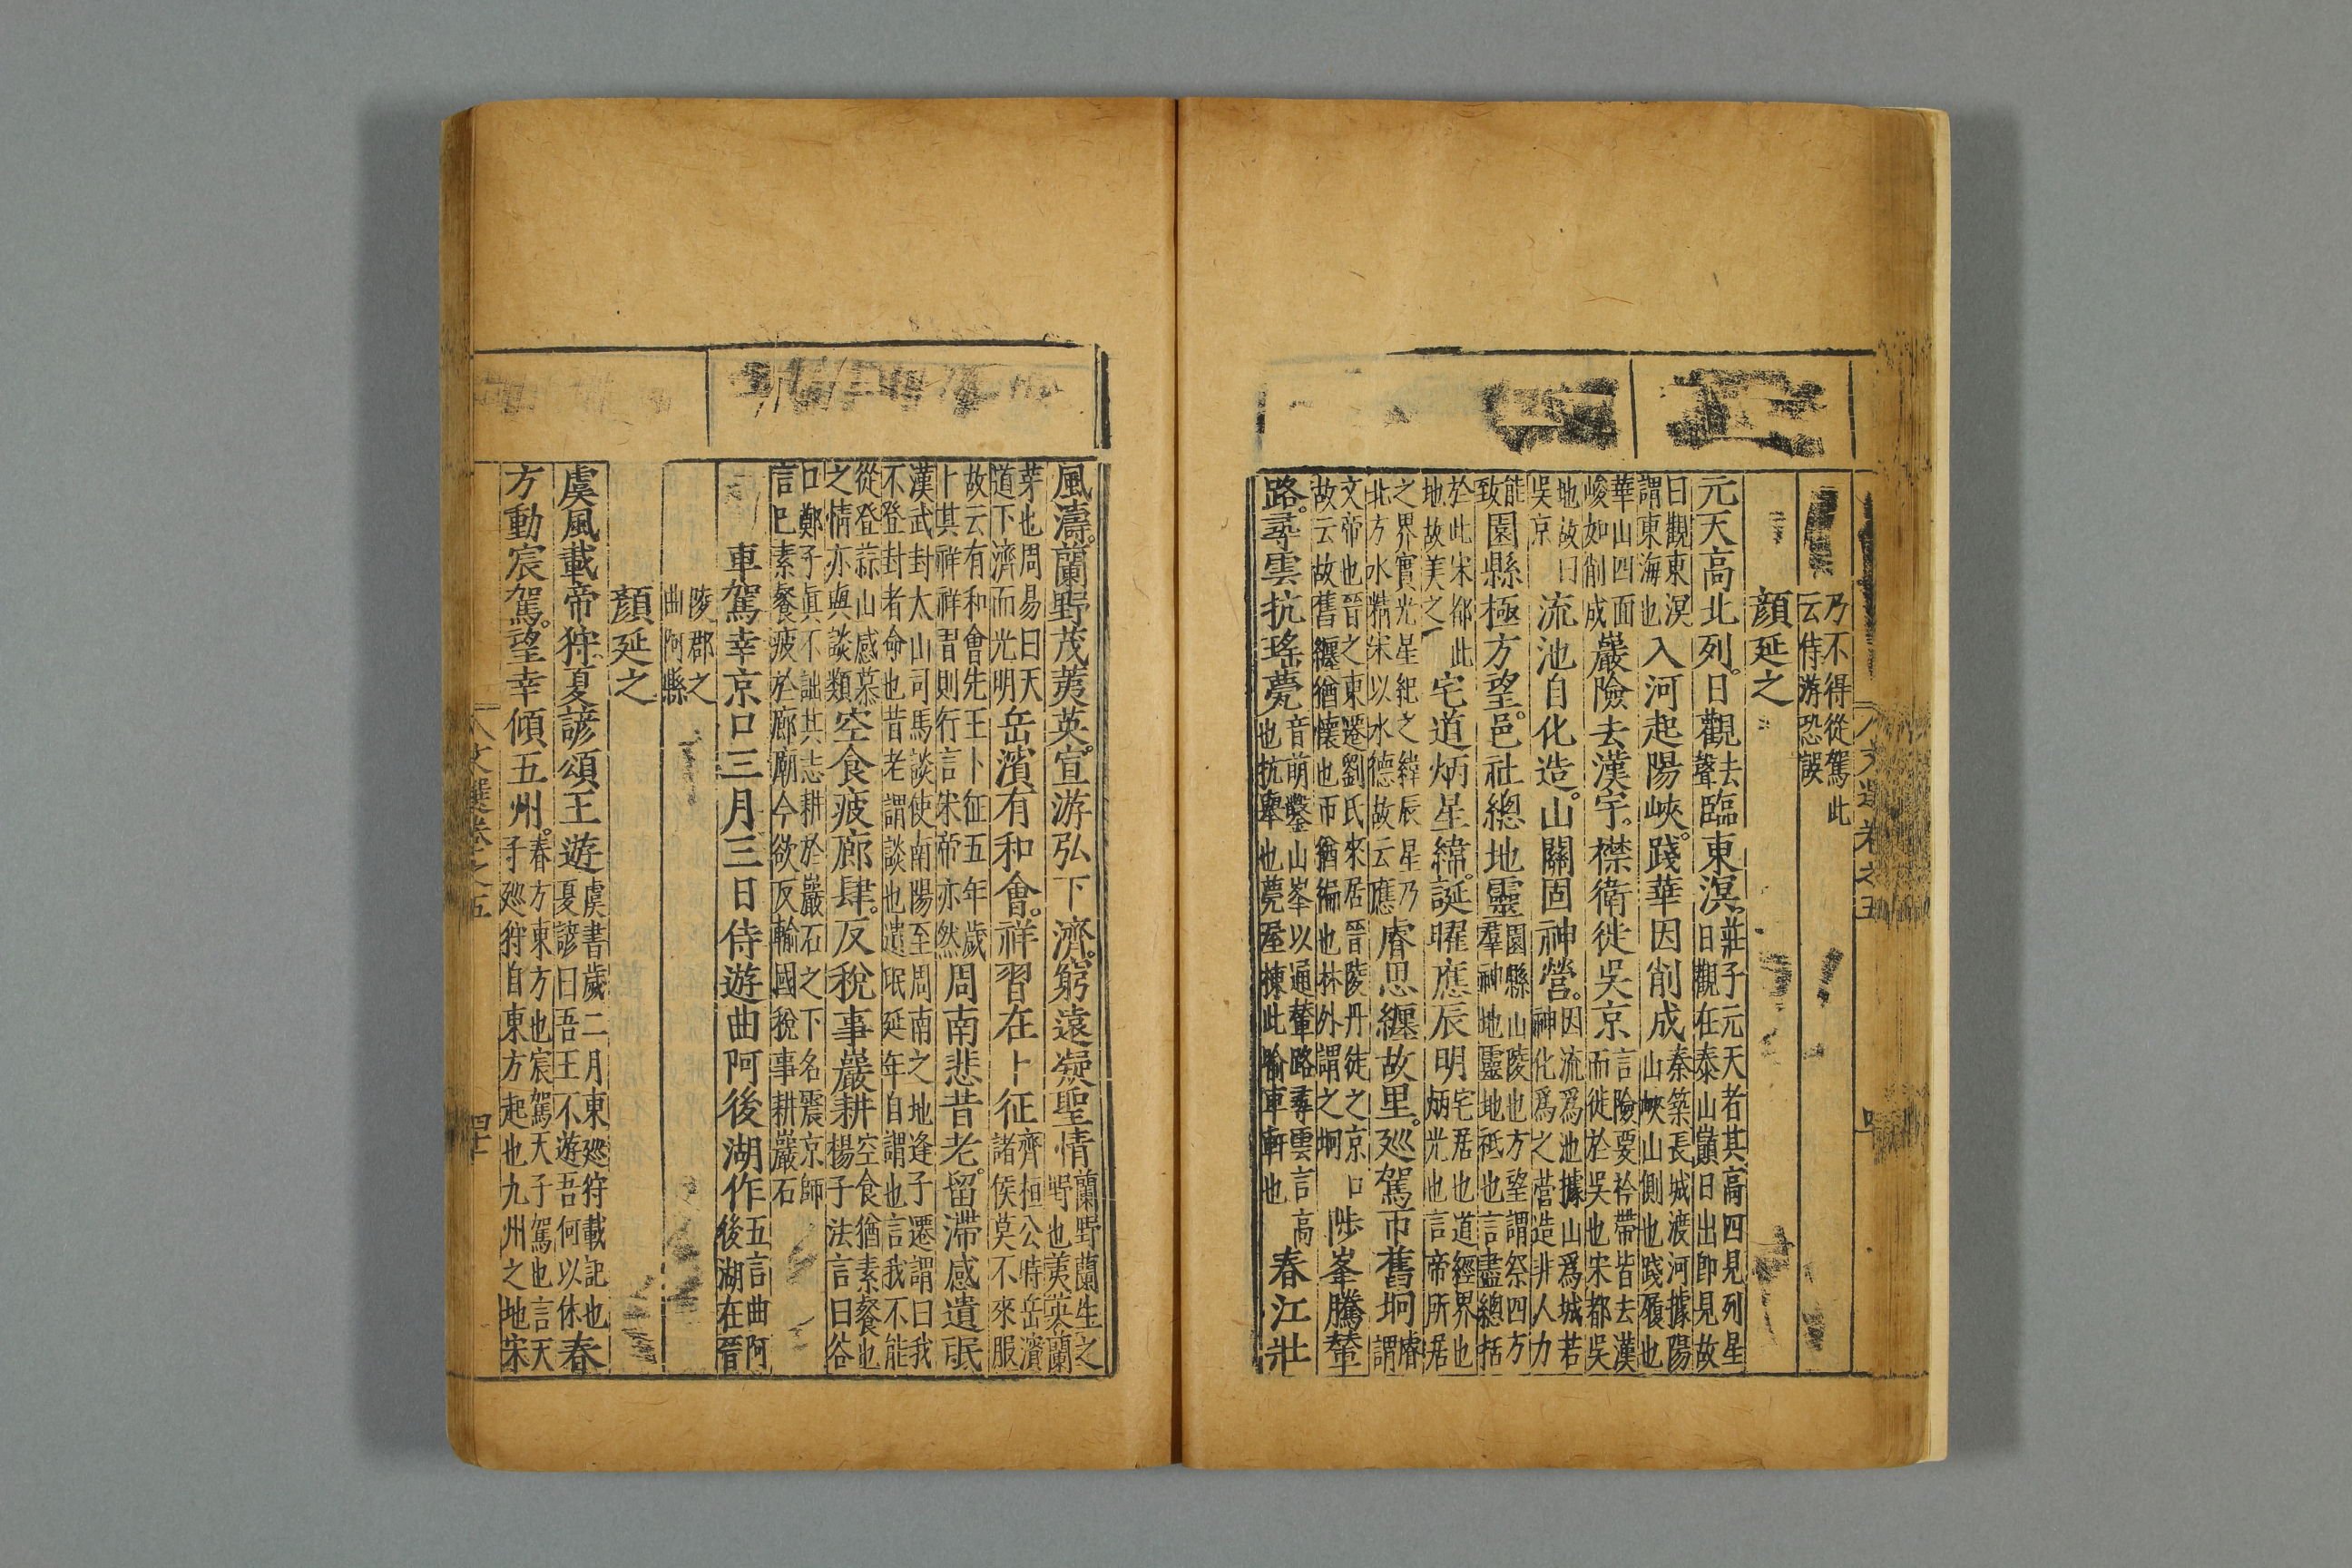 乃不得從駕此
云侍游恐誤
顏延之
元天高北列。日觀去聲臨東溟。莊子元天者其高四見列星
日觀在泰山巔日出即見故
日觀東溟
謂東海也入河起陽峽。踐華因削成秦築長城渡河據陽
山峽山側也踐履也
華山四面
峻如削成巖險去漢宇。襟衛徙吳京言險要衿帶皆去漢
而徙於吳也宋都吳
地故曰
吳京流池自化造。山關固神營。因流爲池據山爲城若
神化爲之營造非人力
能
致園縣極方望。邑社總地靈園縣山陵也方望謂祭四方
羣神地靈地祗也言盡總括
於此宋都此
地故美之宅道炳星緯。誕曜應辰明宅居也道經界也
炳光也言帝所居
之界實光星紀之緯辰星乃
北方水精宋以水德故云應睿思纏故里。巡駕帀舊坰睿
謂
文帝也晉之東遷劉氏來居晉陵丹徒之京口
故云故舊纏猶懷也帀猶徧也林外謂之坰陟峯騰輦
路。尋雲抗瑤甍音萌鑿山峯以通輦路尋雲言高
也抗舉也甍屋棟此喻車軒也春江壯
文選卷之五
風濤。蘭野茂荑英。宣游弘下濟。窮遠凝聖情蘭野蘭生之
野也荑英蘭
芽也周易曰天
道下濟而光明岳濱有和會。祥習在卜征齊桓公時岳濱
諸侯莫不來服
故云有和會先王卜征五年歲
卜其祥祥習則行言宋帝亦然周南悲昔老。留滯感遺氓
漢武封太山司馬談使南陽至周南之地逢子遷謂曰我
不登封者命也昔老謂談也遺氓延年自謂也言我不能
從登蒜山感慕
之情亦與談類空食疲廊肆。反稅事巖耕空食猶素餐也
楊子法言曰谷
口鄭子真不詘其志耕於巖石之下名震京師
言已素餐疲於廊廟今欲反輸國稅事耕巖石
車駕幸京口三月三日侍遊曲阿後湖作五言曲阿
後湖在晉
陵郡之
曲阿縣
顏延之
虞風載帝狩。夏諺頌王遊虞書歲二月東巡狩載記也
夏諺曰吾王不遊吾何以休春
方動宸駕。望幸傾五州。春方東方也宸駕天子駕也言天
子巡狩自東方起也九州之地宋
文選卷之五